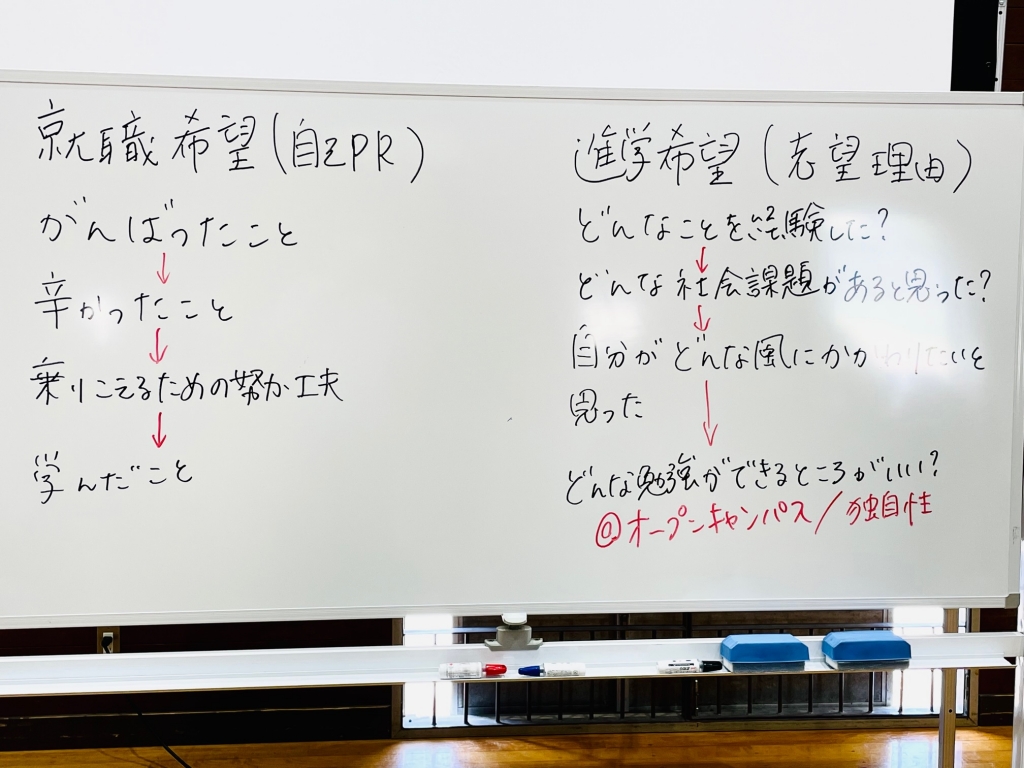 就職希望(自己PR)
がんばったこと
↓
辛かったこと
↓
乗りこえるための努力工夫
↓
学んだこと
進学希望(志望理由)
どんなことを経験した?
↓
どんな社会課題があると思った?
↓
自分がどんな風にかかわりたいと
思った
↓
どんな勉強ができるところがいい?
@オープンキャンパス/独自性